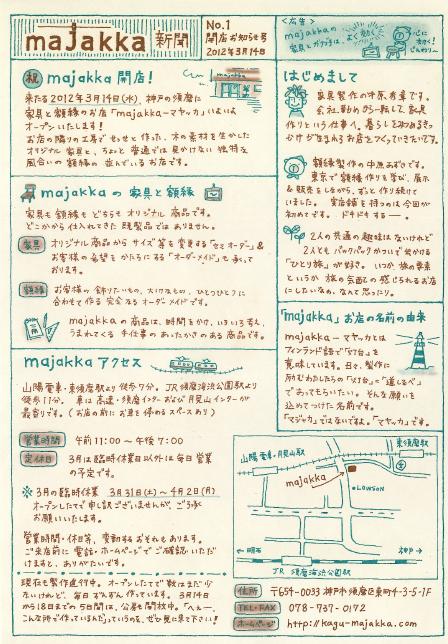 majakka 新聞
No.1
開店お知らせ号
2012年3月14日
＜広告＞
majakkaの
家具とガクブチは
よく働く
祝 majakka 開店！
来たる2012年3月14日(水) 神戸の須磨に
家具と額縁のお店「majakka-マヤッカ」いよいよ
オープンいたします！
お店の隣りの工房でせっせと作った、木の素材を生かした
オリジナル家具と、ちょっと普通では見かけない独特な
風合いの額縁の並んでいるお店です。
majakka の 家具と額縁
家具も額縁もどちらもオリジナル商品です。
どこからか仕入れてきた既製品ではありません。
家具 オリジナル商品からサイズ等を変更する「セミオーダー」＆
お客様の希望をかたちにする「オーダーメイド」も承って
おります。
額縁 お客様の飾りたいもの、大切なもの、ひとつひとつに
合わせて作る完全なるオーダーメイドです。
majakkaの商品は、時間をかけ、いろいろ考え、
うまれてくる手仕事のあたたかさのある商品です。
majakka アクセス
山陽電車・東須磨駅より徒歩7分。JR須磨海浜公園駅より
徒歩11分。車は高速・須磨インターおよび月見山インターが
最寄りです。(お店の前にお車を停めるスペースあり)
営業時間 午前11:00〜午後7:00
定休日 3月は臨時休業日以外は毎日営業
の予定です。
※3月の臨時休業 3月31日(土)〜4月2日(月)
オープンしたてで申し訳ございませんが、ご了承
お願いいたします。
営業時間・休日等、変動するおそれもあります。
ご来店前に電話・ホームページでご確認いただ
けますと、ありがたいです。
現在も製作進行中。オープンしたてで数はまだ少
ないけれど、毎日ずんずん作っています。3月14日
から18日までの5日間は、公募を開放中。「へぇー、
こんな所で作っているんだ」っていうのを、ぜひ見に来て下さい！
はじめまして
家具製作の中原秀章です。
会社勤めから一転して、家具
作りという仕事へ。暮らしをみつめるきっ
かけが生まれるお店をつくっていきたいです。
額縁製作の中原あずさです。
東京で額縁作りを学び、展示
＆販売をしながら、ずっと作り続けて
いました。実店舗を持つのは今回が
初めてです。ドキドキする―。
2人の共通の趣味はないけれど
2人ともバックパックかついで出かける
「ひとり旅」が好き。いつか旅の要素
というか旅の気配の感じられるお店
にしたいなぁ、なんて思ったり。
「majakka」お店の名前の由来
majakka－マヤッカとは
フィンランド語で「灯台」を
意味しています。日々、製作に
励むわたしたちの「灯台」と「道しるべ」
であってもらいたい。そんな願いを
込めてつけた名前です。
「マジャッカ」ではないですよ。「マヤッカ」です。
山陽電車・月見山駅
東須磨駅
majakka
LAWSON
←明石
神戸→
JR 須磨海浜公園駅
住所 〒654-0033 神戸市須磨区東町4-3-5-1F
TEL・FAX 078-737-0172
ホームページ http://kagu-majakka.com